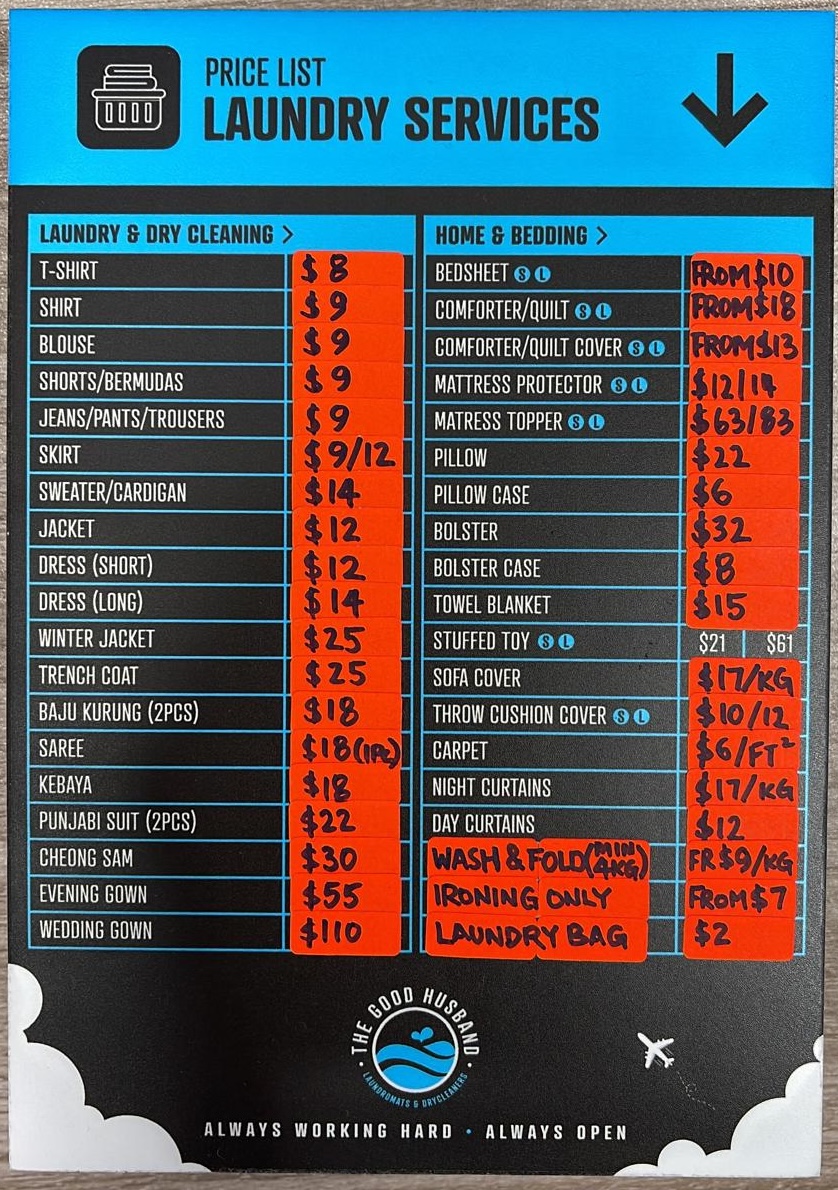 PRICE LIST
LAUNDRY SERVICES
LAUNDRY & DRY CLEANING >
T-SHIRT $8
SHIRT $9
BLOUSE $9
SHORTS/BERMUDAS $9
JEANS/PANTS/TROUSERS $9
SKIRT $9/12
SWEATER/CARDIGAN $14
JACKET $12
DRESS (SHORT) $12
DRESS (LONG) $14
WINTER JACKET $25
TRENCH COAT $25
BAJU KURUNG (2PCS) $18
SAREE $18 (1PC)
KEBAYA $18
PUNJABI SUIT (2PCS) $22
CHEONG SAM $30
EVENING GOWN $55
WEDDING GOWN $110
HOME & BEDDING >
BEDSHEET S L FROM $10
COMFORTER/QUILT S L FROM $18
COMFORTER/QUILT COVER S L FROM $13
MATTRESS PROTECTOR S L $12/14
MATRESS TOPPER S L $63/83
PILLOW $22
PILLOW CASE $6
BOLSTER $32
BOLSTER CASE $8
TOWEL BLANKET $15
STUFFED TOY S L $21 $61
SOFA COVER $17/KG
THROW CUSHION COVER S L $10/12
CARPET $6/FT²
NIGHT CURTAINS $17/KG
DAY CURTAINS $12
WASH & FOLD (MIN 4KG) FR $9/KG
IRONING ONLY FROM $7
LAUNDRY BAG $2
THE GOOD HUSBAND
LAUNDROMATS & DRYCLEANERS
ALWAYS WORKING HARD • ALWAYS OPEN